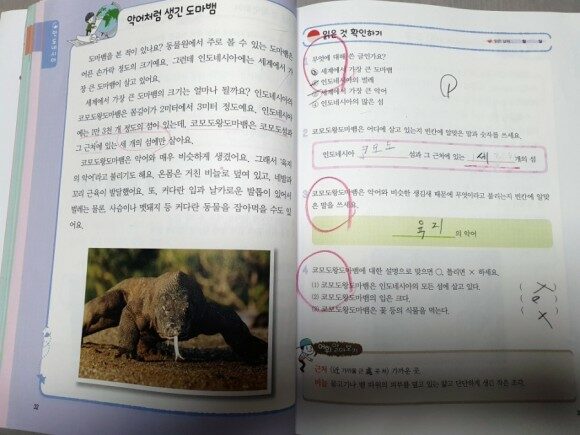 인도네시아
악어처럼 생긴 도마뱀
도마뱀을 본 적이 있나요? 동물원에서 주로 볼 수 있는 도마뱀은
어른 손가락 정도의 크기예요. 그런데 인도네시아에는 세계에서 가
장 큰 도마뱀이 살고 있어요.
세계에서 가장 큰 도마뱀의 크기는 얼마나 될까요? 인도네시아의
코모도왕도마뱀은 몸길이가 2미터에서 3미터 정도예요. 인도네시아
에는 1만 3천 개 정도의 섬이 있는데, 코모도왕도마뱀은 코모도섬과
그 근처에 있는 세 개의 섬에만 살아요.
코모도왕도마뱀은 악어와 매우 비슷하게 생겼어요. 그래서 '육지
의 악어'라고 불리기도 해요. 온몸은 거친 비늘로 덮여 있고, 네발과
꼬리 근육이 발달했어요. 또, 커다란 입과 날카로운 발톱이 있어서
벌레는 물론, 사슴이나 멧돼지 등 커다란 동물을 잡아먹을 수도 있
어요.
32
읽은 것 확인하기
1 무엇에 대해 쓴 글인가요?
① 세계에서 가장 큰 도마뱀
② 인도네시아의 벌레
③ 세계에서 가장 큰 악어
④ 인도네시아의 많은 섬
2 코모도왕도마뱀은 어디에 살고 있는지 빈칸에 알맞은 말과 숫자를 쓰세요.
인도네시아 코모도 섬과 그 근처에 있는 세 개의 섬
3 코모도왕도마뱀은 악어와 비슷한 생김새 때문에 무엇이라고 불리는지 빈칸에 알맞
은 말을 쓰세요.
육지 의 악어
4 코모도왕도마뱀에 대한 설명으로 맞으면 ○, 틀리면 × 하세요.
(1) 코모도왕도마뱀은 인도네시아의 모든 섬에 살고 있다. ( × )
(2) 코모도왕도마뱀의 입은 크다. ( )
(3) 코모도왕도마뱀은 꽃 등의 식물을 먹는다. ( × )
근처 (近 가까울 근 處 곳 처) 가까운 곳.
비늘 물고기나 뱀 따위의 피부를 덮고 있는 얇고 단단하게 생긴 작은 조각.